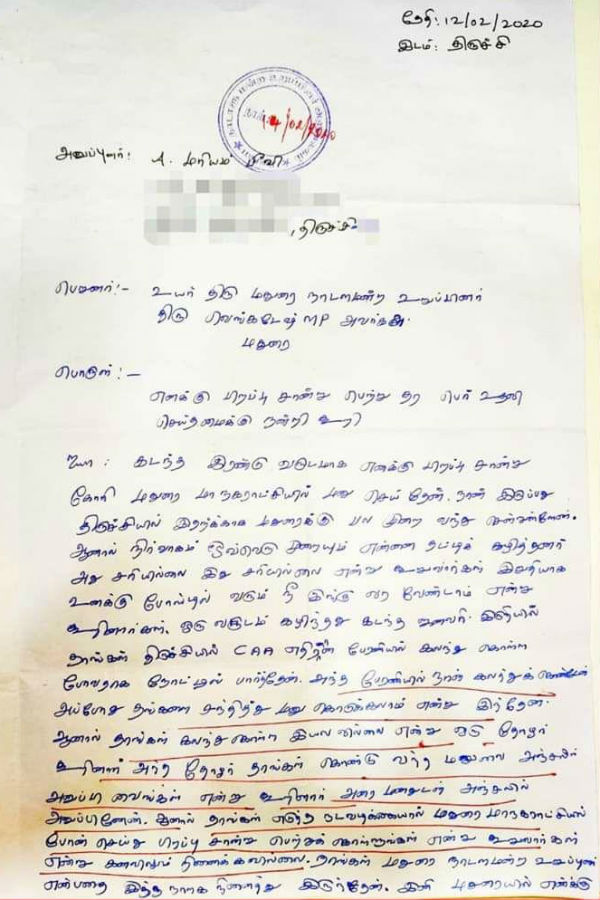 தேதி: 12/02/2020
இடம்: திருச்சி
14/02/2020
அனுப்புனர்: A. மரியம் பீவி
, திருச்சி-
பெறுனர்:- உயர் திரு மதுரை நாடாளுமன்ற உறுப்பினர்
திரு வெங்கடேஷ் MP அவர்கள்.
மதுரை
பொருள்:-
எனக்கு பிறப்பு சான்று பெற்று தர பேர் உதவி
செய்தமைக்கு நன்றி கூறி
ஐயா : கடந்த இரண்டு வருடமாக எனக்கு பிறப்பு சான்று
கோரி மதுரை மாநகராட்சியில் மனு செய்தேன். நான் இருப்பது
திருச்சியில் இதற்க்காக மதுரைக்கு பல முறை வந்து சென்றுள்ளேன்.
ஆனால் நிர்வாகம் ஒவ்வொரு முறையும் என்னை தட்டிக் கழித்தனர்
அது சரியில்லை இது சரியில்லை என்று கூறுவார்கள் இறுதியாக
உனக்கு போஸ்டில் வரும் நீ இங்கு வர வேண்டாம் என்று
கூறினார்கள். ஒரு வருடம் கழிந்தது கடந்த ஜனவரி இறுதியில்
தாங்கள் திருச்சியில் CAA எதிர்ப்பு பேரணியில் கலந்து கொள்ள
போவதாக நோட்டீஸ் பார்த்தேன். அந்த பேரணியில் நான் கலந்துக் கொண்டேன்
அப்போது தங்களை சந்தித்து மனு கொடுக்கலாம் என்று இருந்தேன்.
ஆனால் தாங்கள் கலந்து கொள்ள இயலவில்லை என்று ஒரு தோழர்
கூறினார் அந்த தோழர் தாங்கள் கொண்டு வந்த மனுவை அஞ்சலில்
அனுப்பி வையுங்கள் என்று கூறினார் அரை மனதுடன் அஞ்சலில்
அனுப்பினேன். ஆனால் தாங்கள் எடுத்த நடவடிக்கையால் மதுரை மாநகராட்சியில்
போன் செய்து பிறப்பு சான்று பெற்றுக் கொள்ளுங்கள் என்று கூறுவார்கள்
என்று கனவிலும் நினைக்கவில்லை. தாங்கள் மதுரை நாடாளுமன்ற உறுப்பினர்
என்பதை இத்த நாளாக நினைத்து இருந்தேன். இனி மதுரையில் எனக்கு